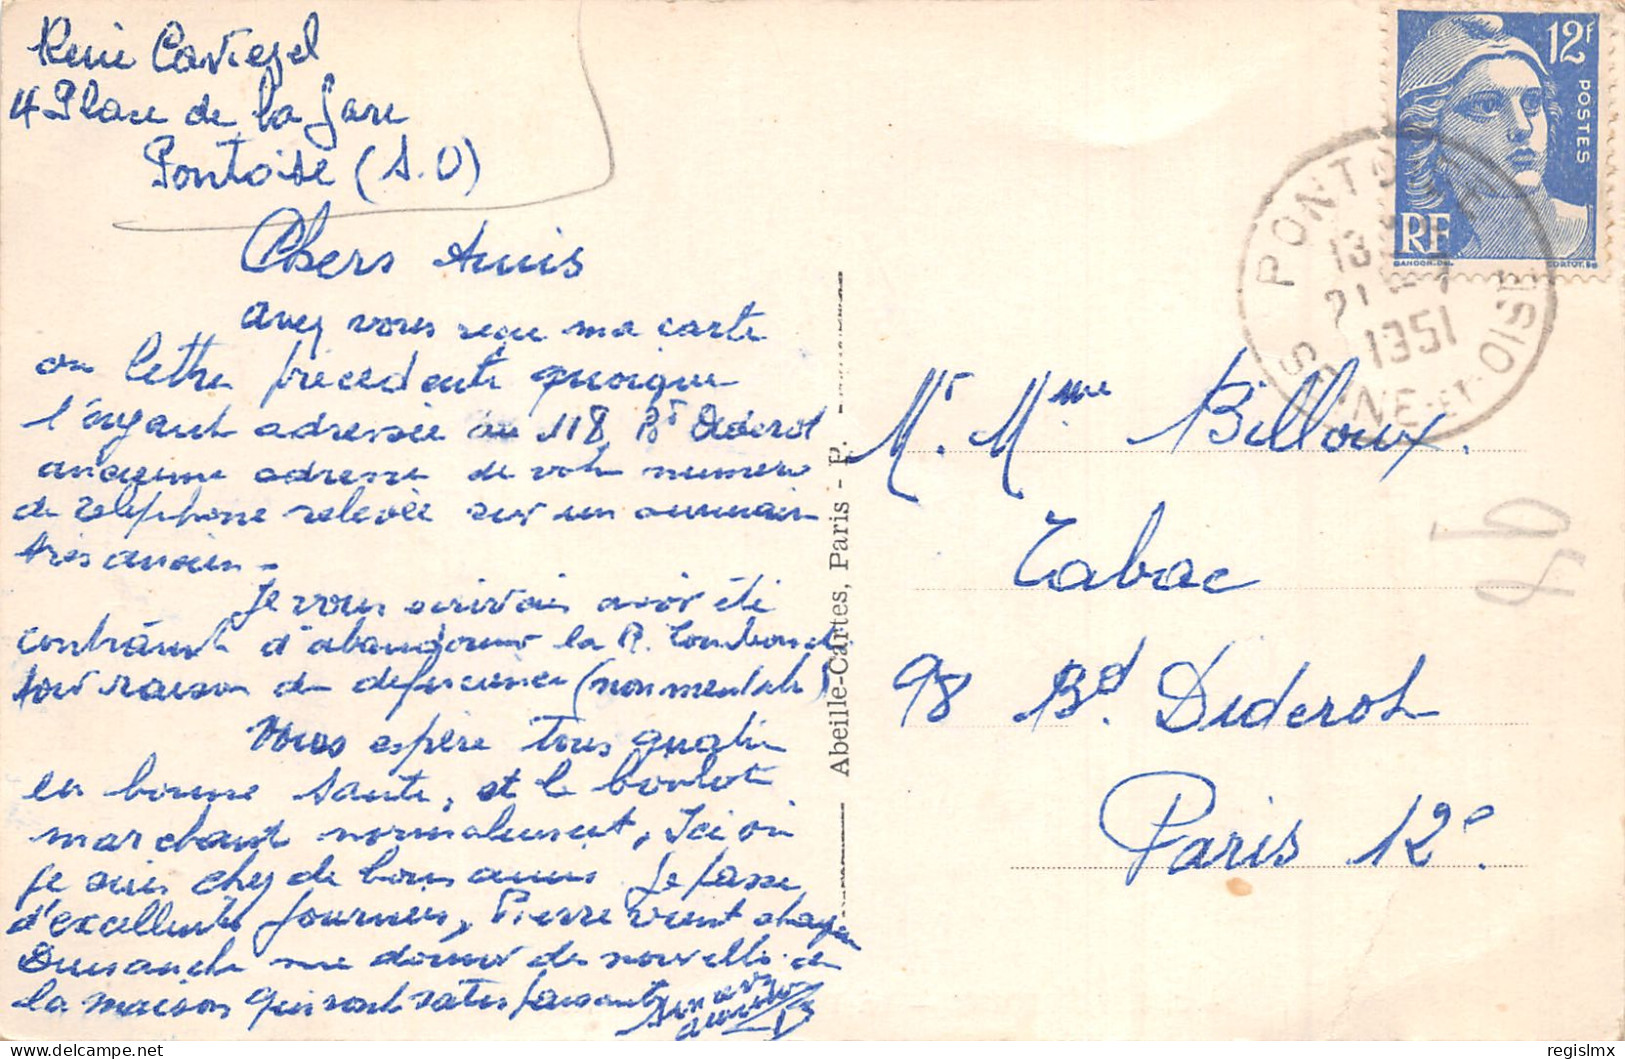 René Caviezel
4 Place de la Gare
Pontoise (S.O)
Chers Amis
avez vous reçu ma carte
ou lettre précédente quoique
l'ayant adressée au 118 Bt Diderot
ancienne adresse de votre numero
de telephone relevée sur un annuaire
très ancien -
Je vous écrivais avoir été
contraint d'abandonner la R.
pour raison de déficience (non mentale)
Vous espère tous quatre
en bonne santé, et le boulot
marchant normalement, Ici où
je suis chez de bons amis Je passe
d'excellentes journées, Pierre vient chaque
Dimanche me donner des nouvelles de
la maison qui sont satisfaisantes
Abeille-Cartes, Paris - P.
12F
POSTES
RF
GANDON DEL.
CORTOT SC
PONTOISE
13
21
1951
SEINE-ET-OISE
Mr. Mme Billoux.
Tabac
98 Bd. Diderot
Paris 12e.
regislmx